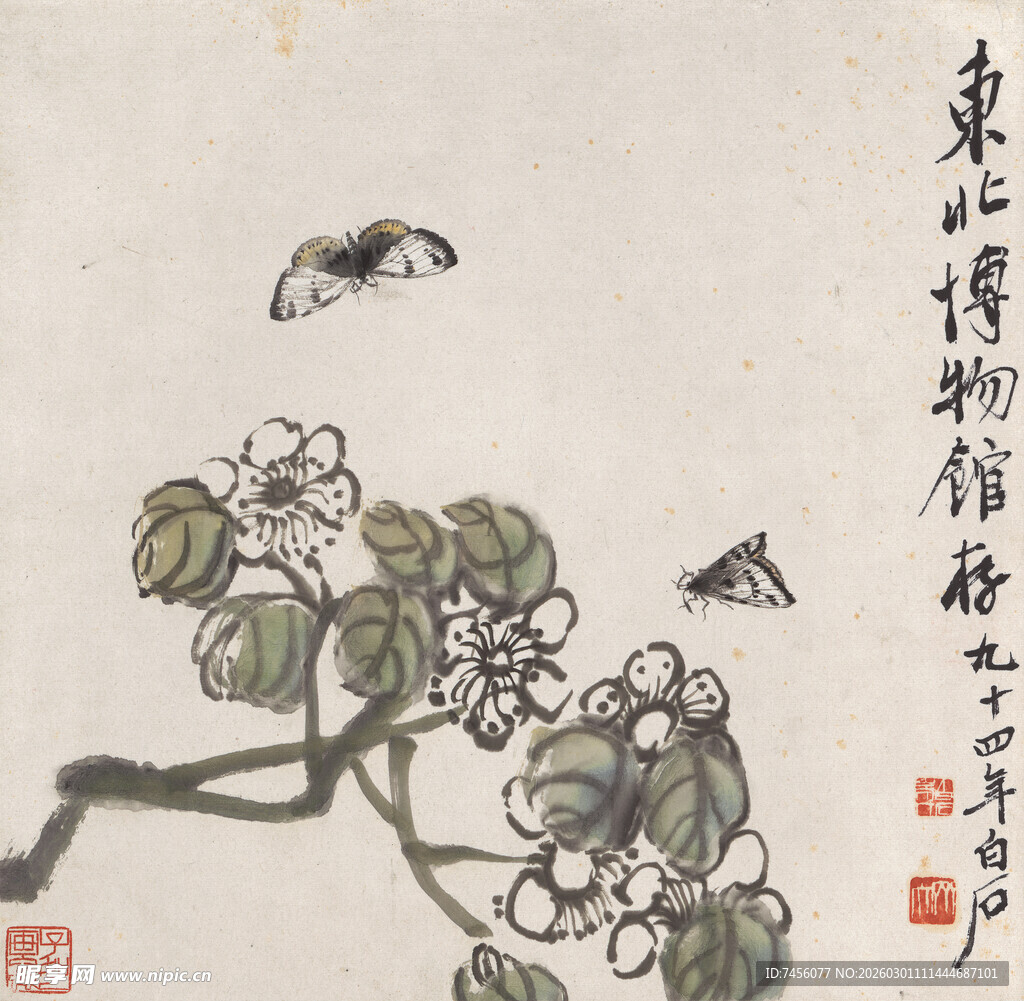 東北博物館存九十四年白石
昵享网 www.nipic.cn
ID:7456077 NO:20260301111444687101